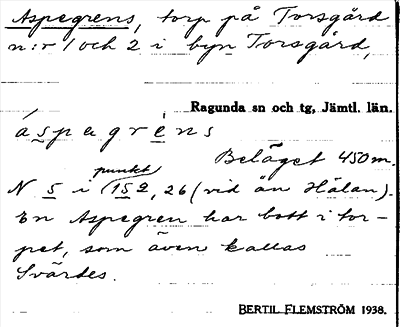 Aspegrens, torp på Torsgård
n:r 1 och 2 i byn Torsgård,
Ragunda sn och tg, Jämtl. län.
áspegrèns
Beläget 450 m.
punkt
N 5 i (159, 26 (vid ån Hälan).
En Aspegren har bott i tor-
pet, som även kallas
Svärdes.
BERTIL FLEMSTRÖM 1938.